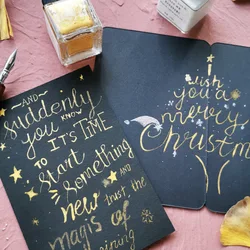 -AND-
Suddenly
you KNOW
IT'S TIME
TO
Start
Something
new AND
trust the
magic of
wish
you a
merry
Christmas